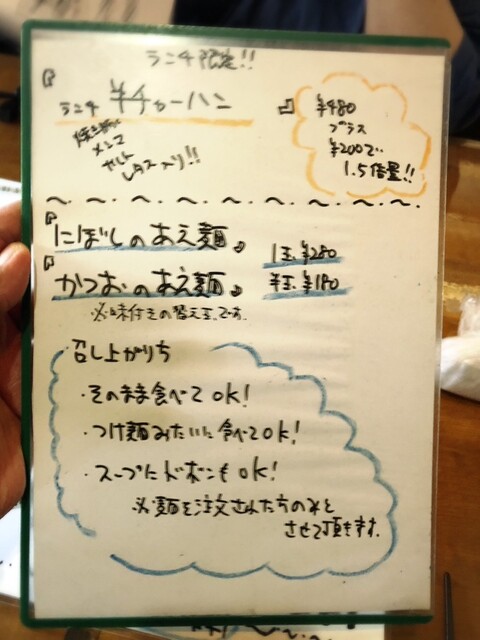 ランチ限定!!
『ランチ半チャーハン』
焼き豚
メンマ
レタス入り!!
¥480
プラス
¥200で
1.5倍量!!
『にぼしのあえ麺』 1玉 ¥280
『かつおのあえ麺』 半玉 ¥180
※味付きの替え玉です。
召し上がり方
・そのまま食べてOK!
・つけ麺みたいに食べてOK!
・スープにドボンもOK!
※麺を注文された方のみと
させて頂きます。